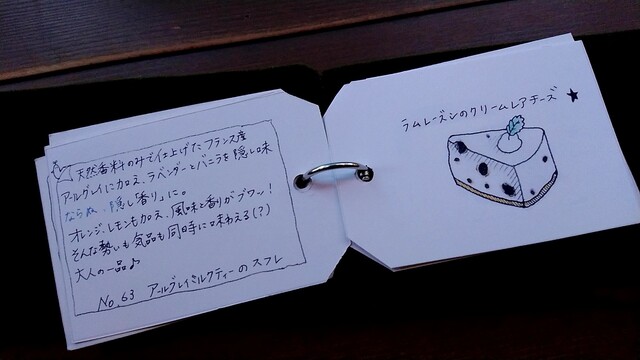 天然香料のみで仕上げたフランス産
アールグレイに加え、ラベンダーとバニラを隠し味
ならぬ、隠し「香り」に。
オレンジ、レモンも加え、風味と香りがブワッ!
そんな勢いも気品も同時に味わえる(?)
大人の一品♪
No.63 アールグレイミルクティーのスフレ
ラムレーズンのクリームレアチーズ ★